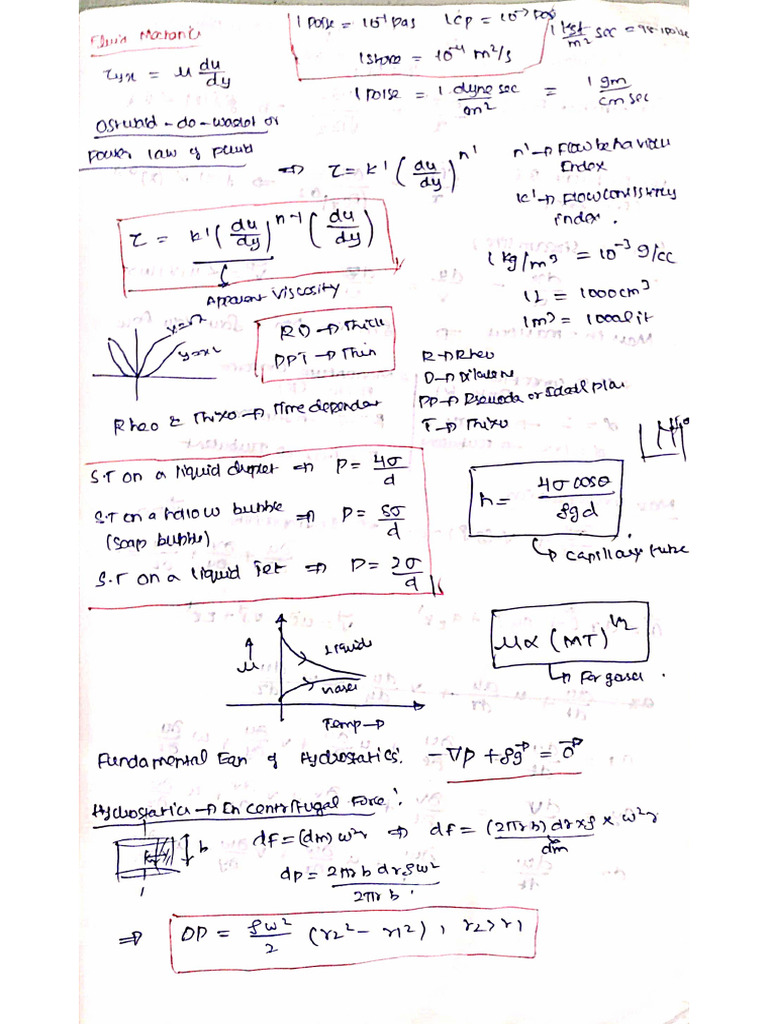 Fluid Mechanic
1 Poise = 10⁻¹ Pas 1 cp = 10⁻³ Pas
1 kgf/m² sec = 98.1 poise
1 stoke = 10⁻⁴ m²/s
τyx = μ du/dy
1 Poise = 1 dyne sec/cm² = 1 gm/cm sec
Ostwald-de-waele or
Power law of fluid
⇒ τ = k' (du/dy)^n'
n' → Flow behaviour Index
k' → Flow consistency index.
τ = k' (du/dy)^n-1 (du/dy)
Apparent Viscosity
1 kg/m³ = 10⁻³ g/cc
1 L = 1000 cm³
1 m³ = 1000 lit
y=x²
RD → Thick
PPT → Thin
R → Rheo
D → Dilatent
PP → Pseudo
T → Thixo
Rheo & Thixo → Time dependent
S.T on a liquid duplet ⇒ P = 4σ/d
S.T on a hallow bubble ⇒ P = 8σ/d
(soap bubble)
S.T on a liquid jet ⇒ P = 2σ/d
h = 4σ cosθ/ρgd
capillary tube
μ
Liquids
Gases
Temp →
μ α (MT)^1/2
For gases.
Fundamental Eqn of Hydrostatics: -∇P + ρg⃗ = 0⃗
Hydrostatics → In Centrifugal Force:
b
dF = (dm) ω²r ⇒ dF = (2πrb) dr × ρ × ω²r
dm
dp = 2πrb dr ρω²/2πrb
⇒ DP = ρω²/2 (r₂² - r₁²), r₂ > r₁